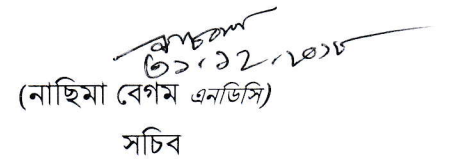 ৩১.১২.২০১৮
(নাছিমা বেগম এনডিসি)
সচিব